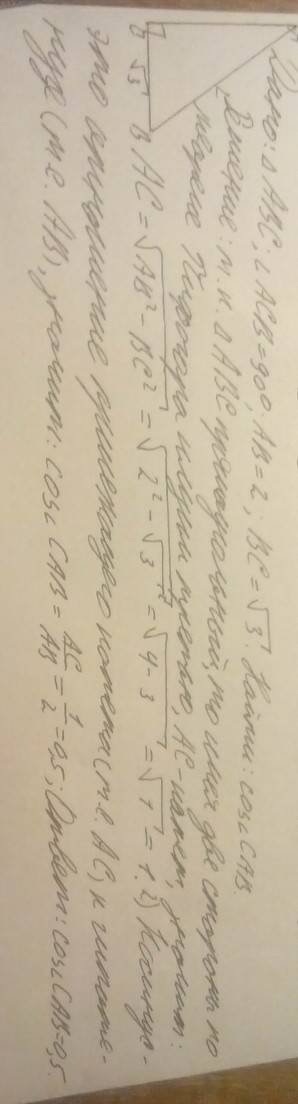 Дано: △ABC; ∠ACB=90°. AB=2; BC=√3. Найти: cos∠CAB.
Решение: т.к. △ABC прямоугольный, то имея две стороны по
теореме Пифагора ищем третью, AC-катет, значит:
C √3 B. AC=√AB²-BC² = √2²-√3² = √4-3 = √1 = 1. 2) Косинус-
это отношение прилежащего катета (т.е. AC) к гипоте-
нузе (т.е. AB), значит: cos∠CAB = AC/AB = 1/2 = 0,5; Ответ: cos∠CAB=0,5.